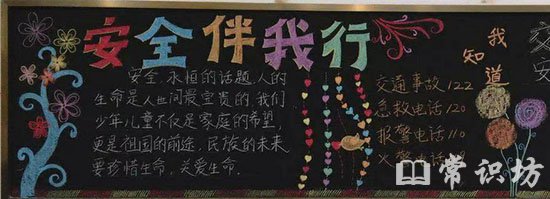 安全伴我行
安全,永恒的话题,人的
生命是人世间最宝贵的,我们
少年儿童不仅是家庭的希望,
更是祖国的前途、民族的未来
要珍惜生命,关爱生命.
我知道
交通事故122
急救电话120
报警电话110
火警电话
交
安
常识坊